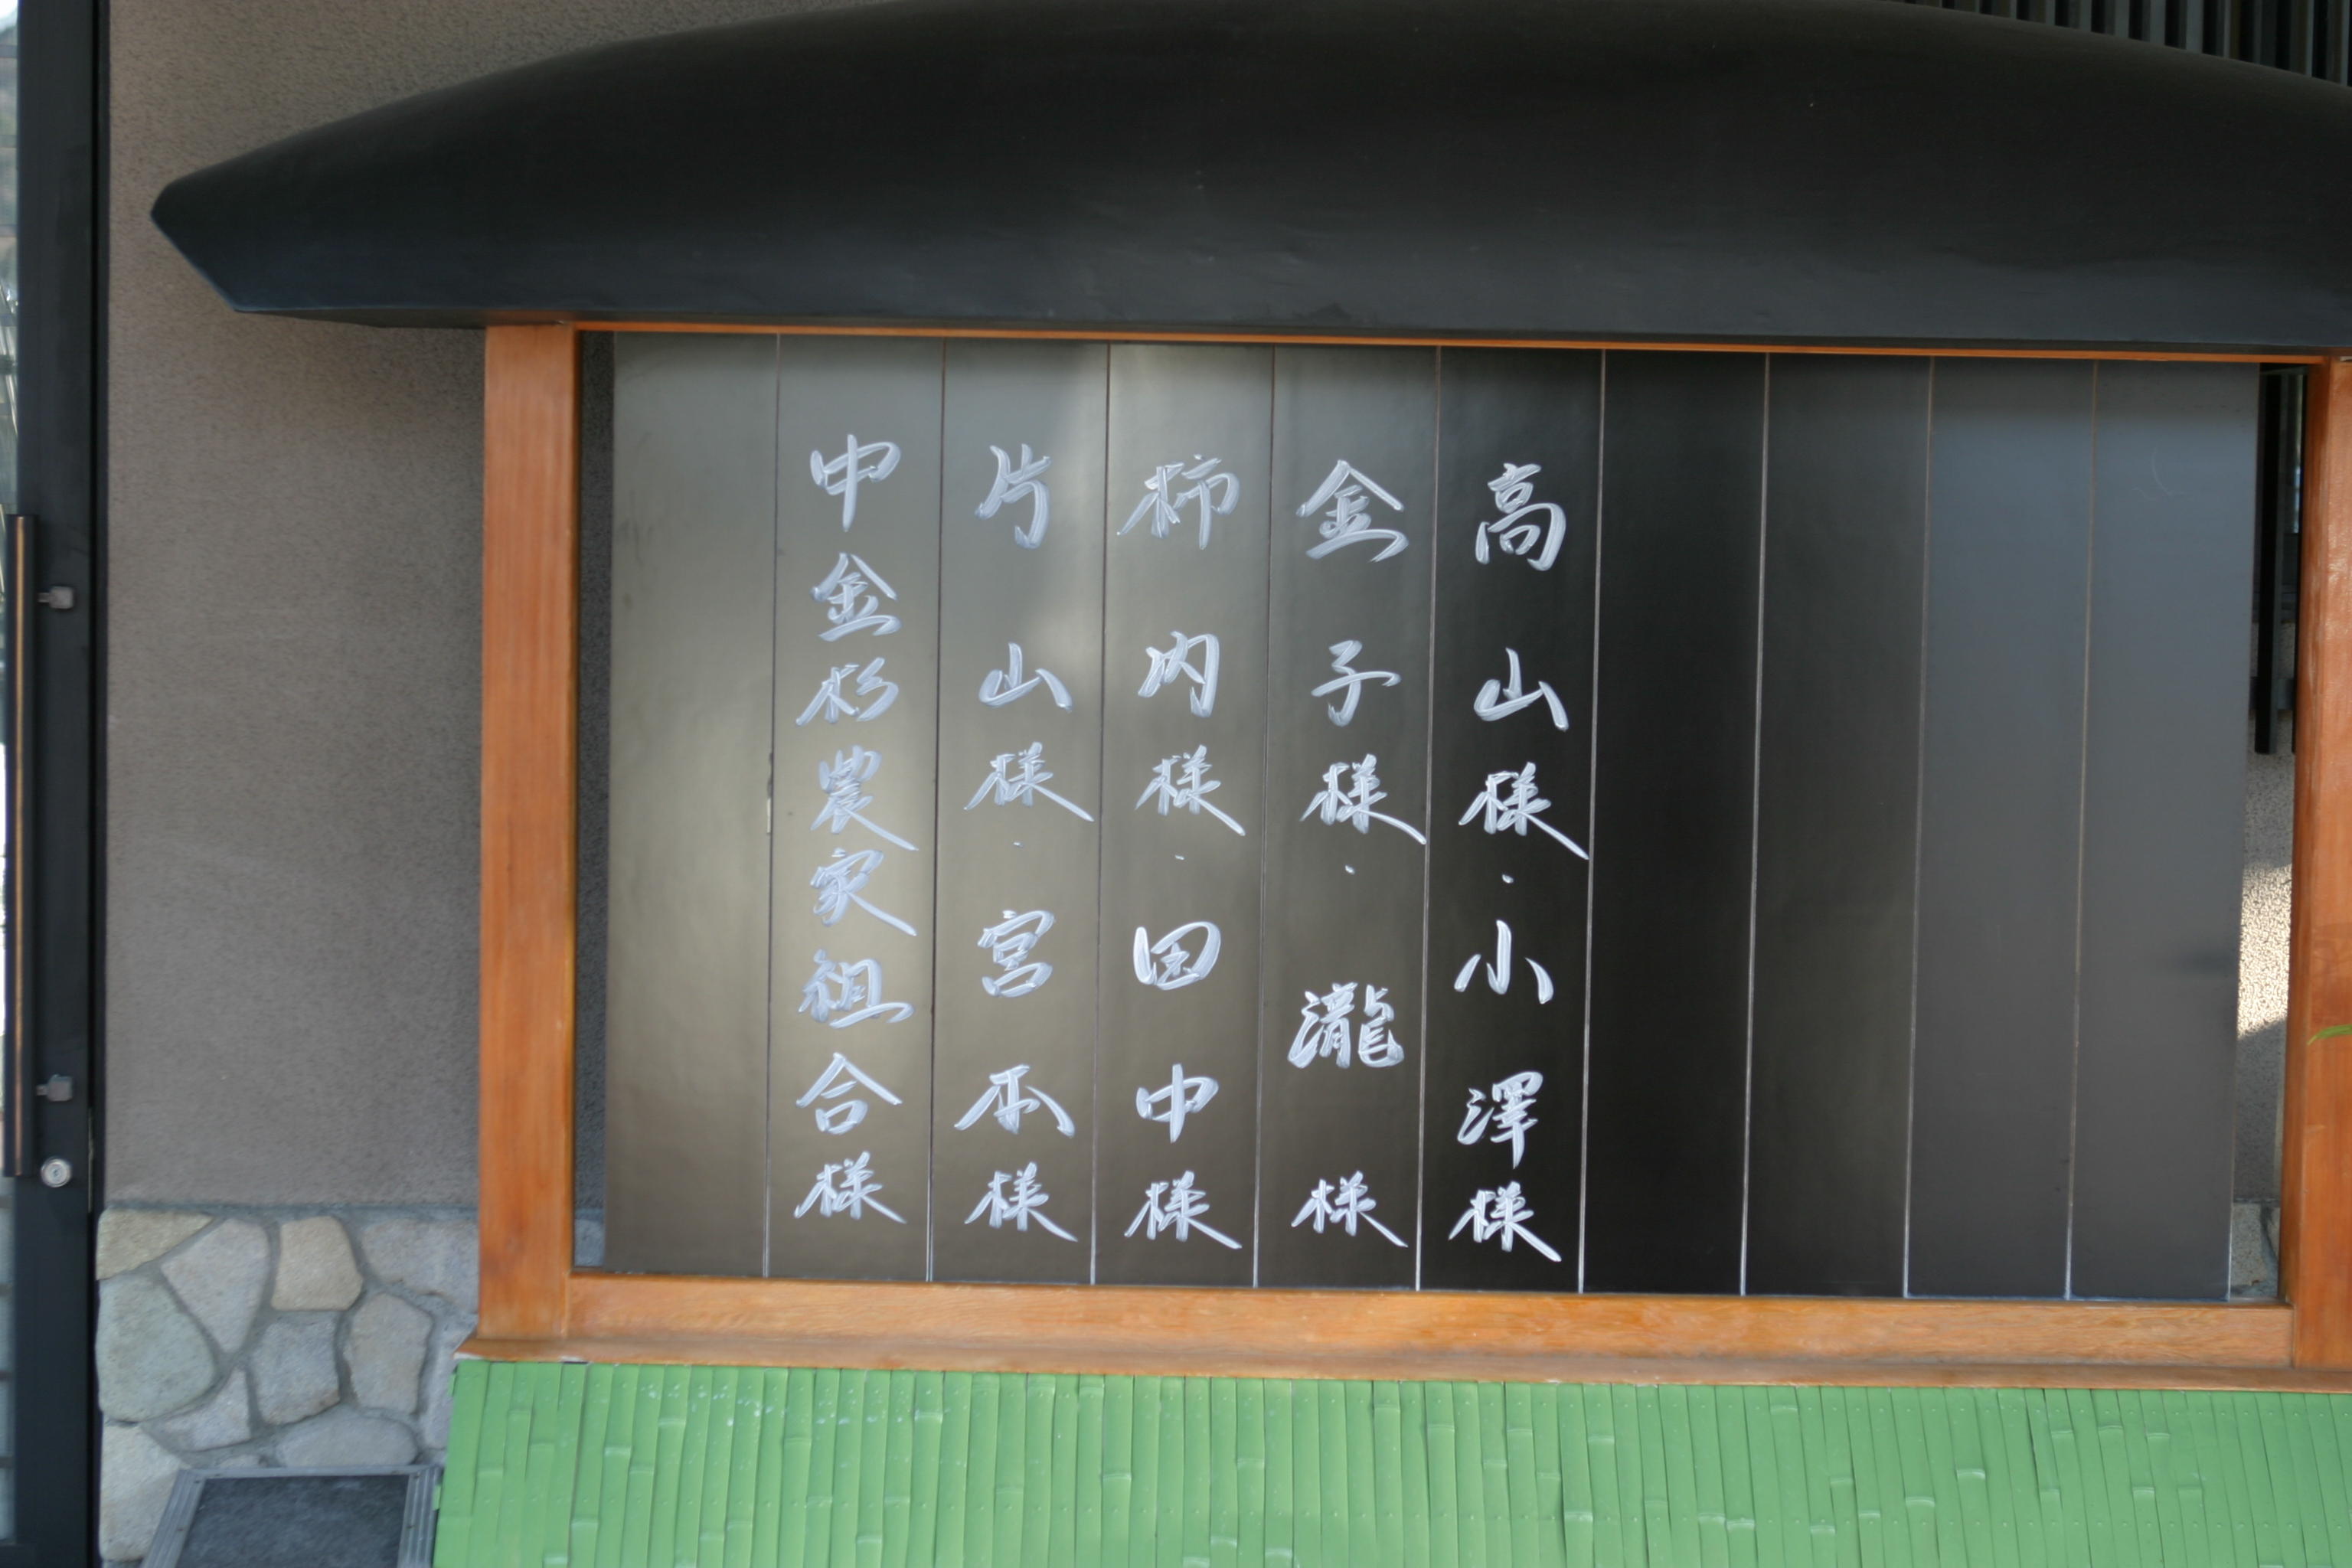 高山様・小澤様
金子様・瀧様
柿内様・田中様
片山様・宮本様
中金杉農家組合様